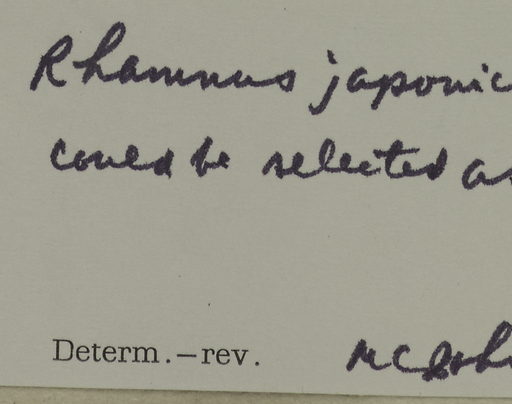 Rhamnus japonic
could be selected as
Determ.—rev. MC Joh